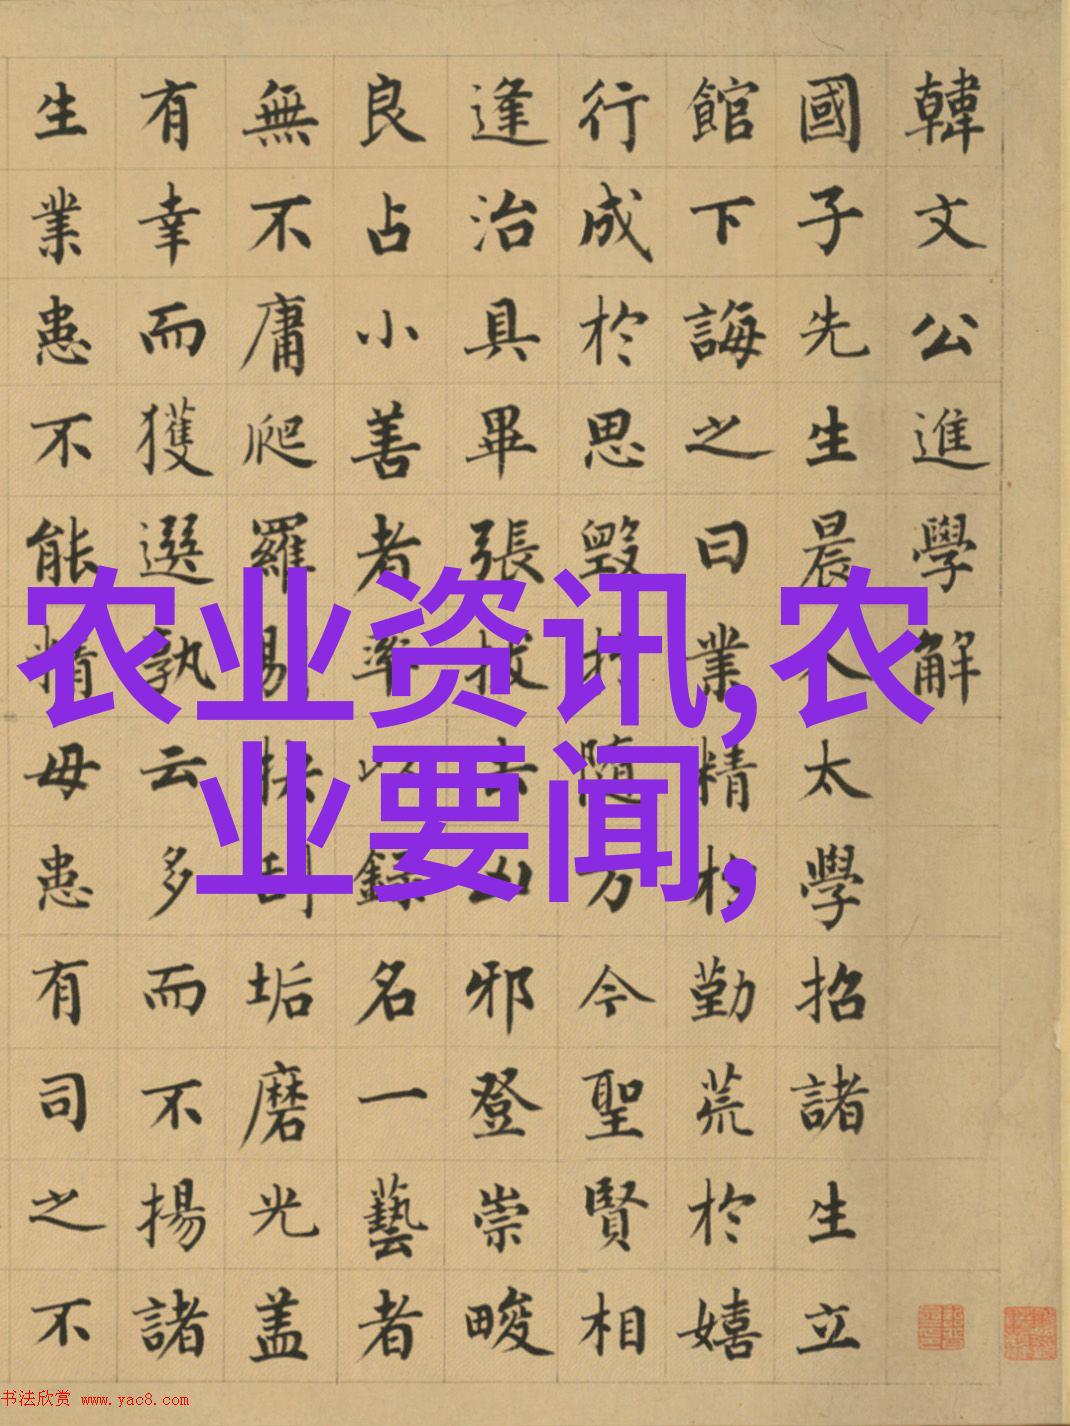 韓文公進學解
國子先生晨入太學招諸生立
館下誨之曰業精於勤荒於嬉
行成於思毀於隨方今聖賢相
逢治具畢張拔去凶邪登崇畯
良占小善者率以錄名一藝者
無不庸爬羅剔抉刮垢磨光盖
有幸而獲選孰云多而不揚諸
生業患不能精毋患有司之不
农业资讯,农
业要闻,
书法欣赏 www.yac8.com